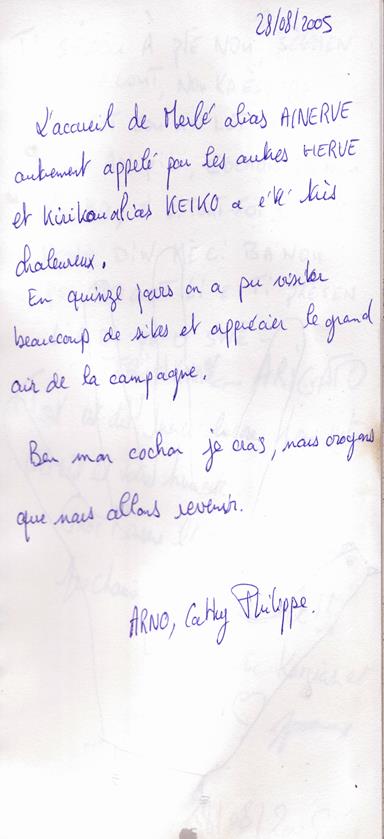 28/08/2005
L'accueil de Merlé alias AINERVE
autrement appelé par les autres HERVE
et Kirikou alias KEIKO a été très
chaleureux.
En quinze jours on a pu visiter
beaucoup de sites et apprécier le grand
air de la campagne.
Ben mon cochon je crois, nous croyons
que nous allons revenir.
ARNO, Cathy Philippe.